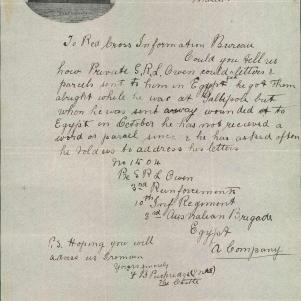 To Red Cross Information Bureau
Could you tell us
how Private G.R.L. Owen could letters &
parcels sent to him in Egypt he got them
alright while he was at Gallipoli but
when he was sent away wounded to
Egypt in October he has not recieved a
word or parcel since & he has asked often
he told us to address his letters
No 1504
Pte G R L Owen
3rd Reinforcements
10th Inf Regiment
3rd Australian Brigade
Egypt
A Company
P.S. Hoping you will
I remain
Yours sincerely